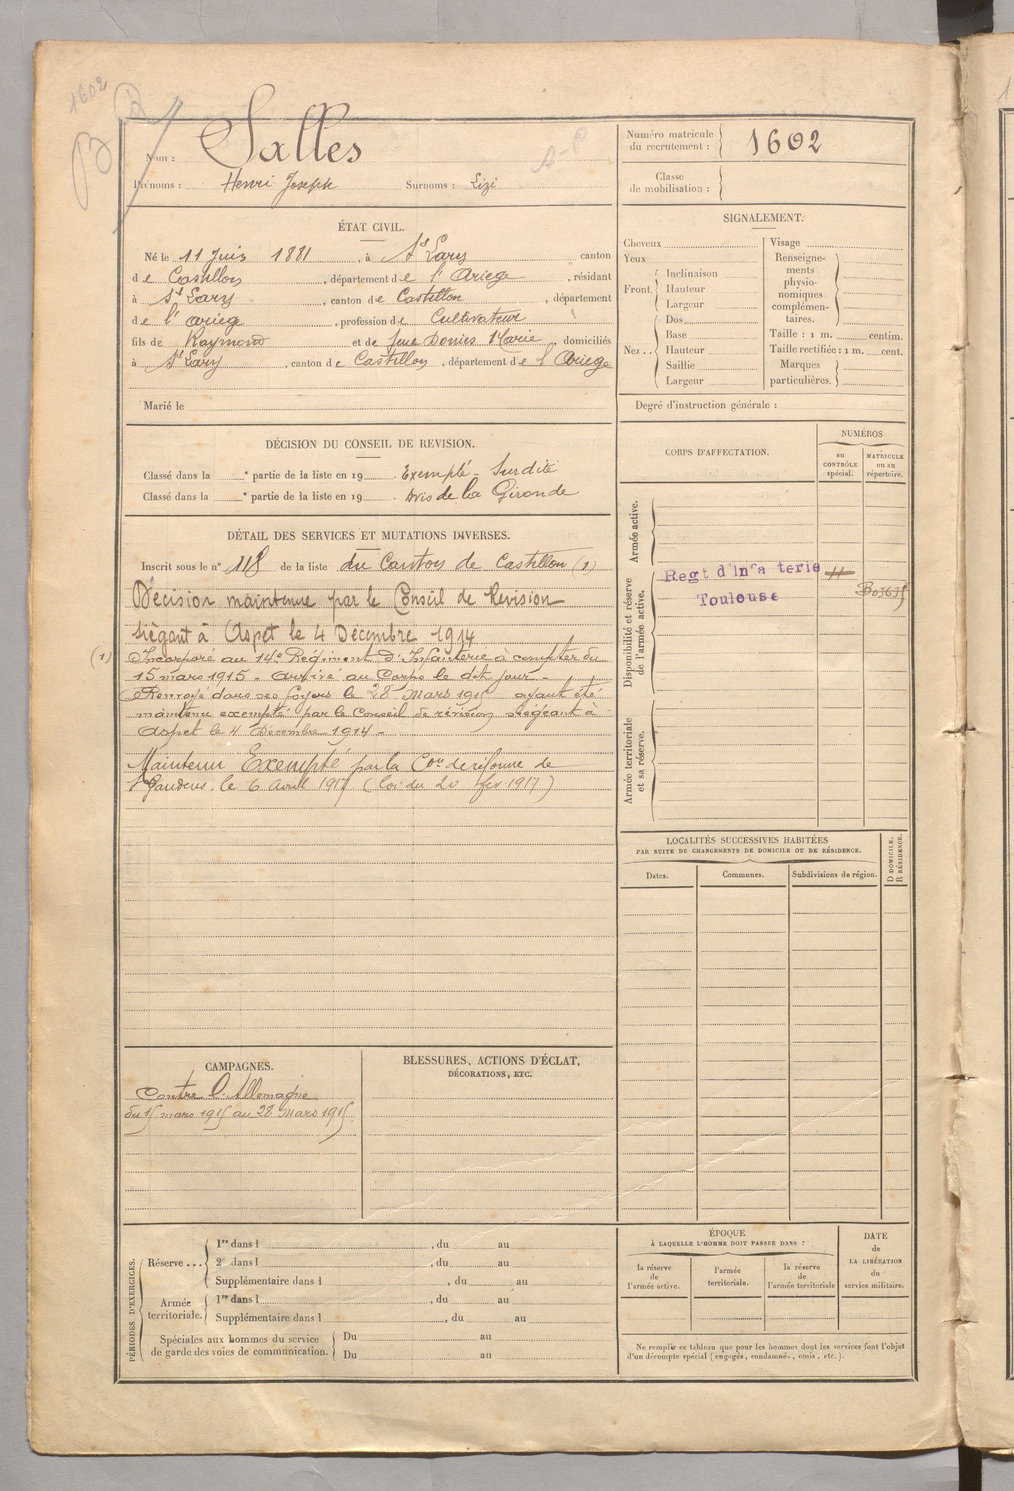 1602
B
Nom : Salles
A-P
Prénoms : Henri Joseph Surnoms : Lizi
Numéro matricule du recrutement : 1602
Classe de mobilisation :
ÉTAT CIVIL.
Né le 11 Juin 1881, à St Lary canton
de Castillon, département de l'Ariege, résidant
à St Lary, canton de Castillon, département
de l'arieg, profession de Cultivateur
fils de Raymond et de feue Domes Marie domiciliés
à St Lary, canton de Castillon, département de l'Ariege
Marié le
SIGNALEMENT.
Cheveux
Yeux
Front. Inclinaison
Hauteur
Largeur
Nez.. Dos
Base
Hauteur
Saillie
Largeur
Visage
Renseignements physionomiques complémentaires.
Taille : 1 m. centim.
Taille rectifiée : 1 m. cent.
Marques particulières.
Degré d'instruction générale :
DÉCISION DU CONSEIL DE REVISION.
Classé dans la e partie de la liste en 19 . Exempté - Surdité
Classé dans la e partie de la liste en 19 . Avis de la Gironde
DÉTAIL DES SERVICES ET MUTATIONS DIVERSES.
Inscrit sous le n° 118 de la liste du Canton de Castillon (1)
Décision maintenue par le Conseil de Revision
siègant à Aspet le 4 Décembre 1914
(1) Incorporé au 14e Régiment d'Infanterie à compter du
15 mars 1915 - arrivé au Corps le dit jour -
Renvoyé dans ses foyers le 28 mars 1915 ayant été
maintenu exempté par le Conseil de révision siégeant à
Aspet le 4 Décembre 1914 -
Maintenu Exempté par la Con de réforme de
St Gaudens, le 6 Avril 1917 (loi du 20 fev 1917)
CORPS D'AFFECTATION.
NUMÉROS
au CONTRÔLE spécial.
MATRICULE ou au répertoire.
Armée active.
Disponibilité et réserve de l'armée active.
Regt d'Infanterie
Toulouse
Armée territoriale et sa réserve.
LOCALITÉS SUCCESSIVES HABITÉES
PAR SUITE DE CHANGEMENTS DE DOMICILE OU DE RÉSIDENCE.
Dates.
Communes.
Subdivisions de région.
D DOMICILE.
R RÉSIDENCE.
CAMPAGNES.
Contre l'Allemagne
du 15 mars 1915 au 28 mars 1915
BLESSURES, ACTIONS D'ÉCLAT,
DÉCORATIONS, ETC.
PÉRIODES D'EXERCICES.
Réserve... 1re dans l , du au
2e dans l , du au
Supplémentaire dans l , du au
Armée territoriale. 1re dans l , du au
Supplémentaire dans l , du au
Spéciales aux hommes du service
de garde des voies de communication. Du au
Du au
ÉPOQUE
À LAQUELLE L'HOMME DOIT PASSER DANS :
la réserve de l'armée active.
l'armée territoriale.
la réserve de l'armée territoriale
DATE de LA LIBÉRATION du service militaire.
Ne remplir ce tableau que pour les hommes dont les services font l'objet
d'un décompte spécial (engagés, condamnés, omis, etc.).